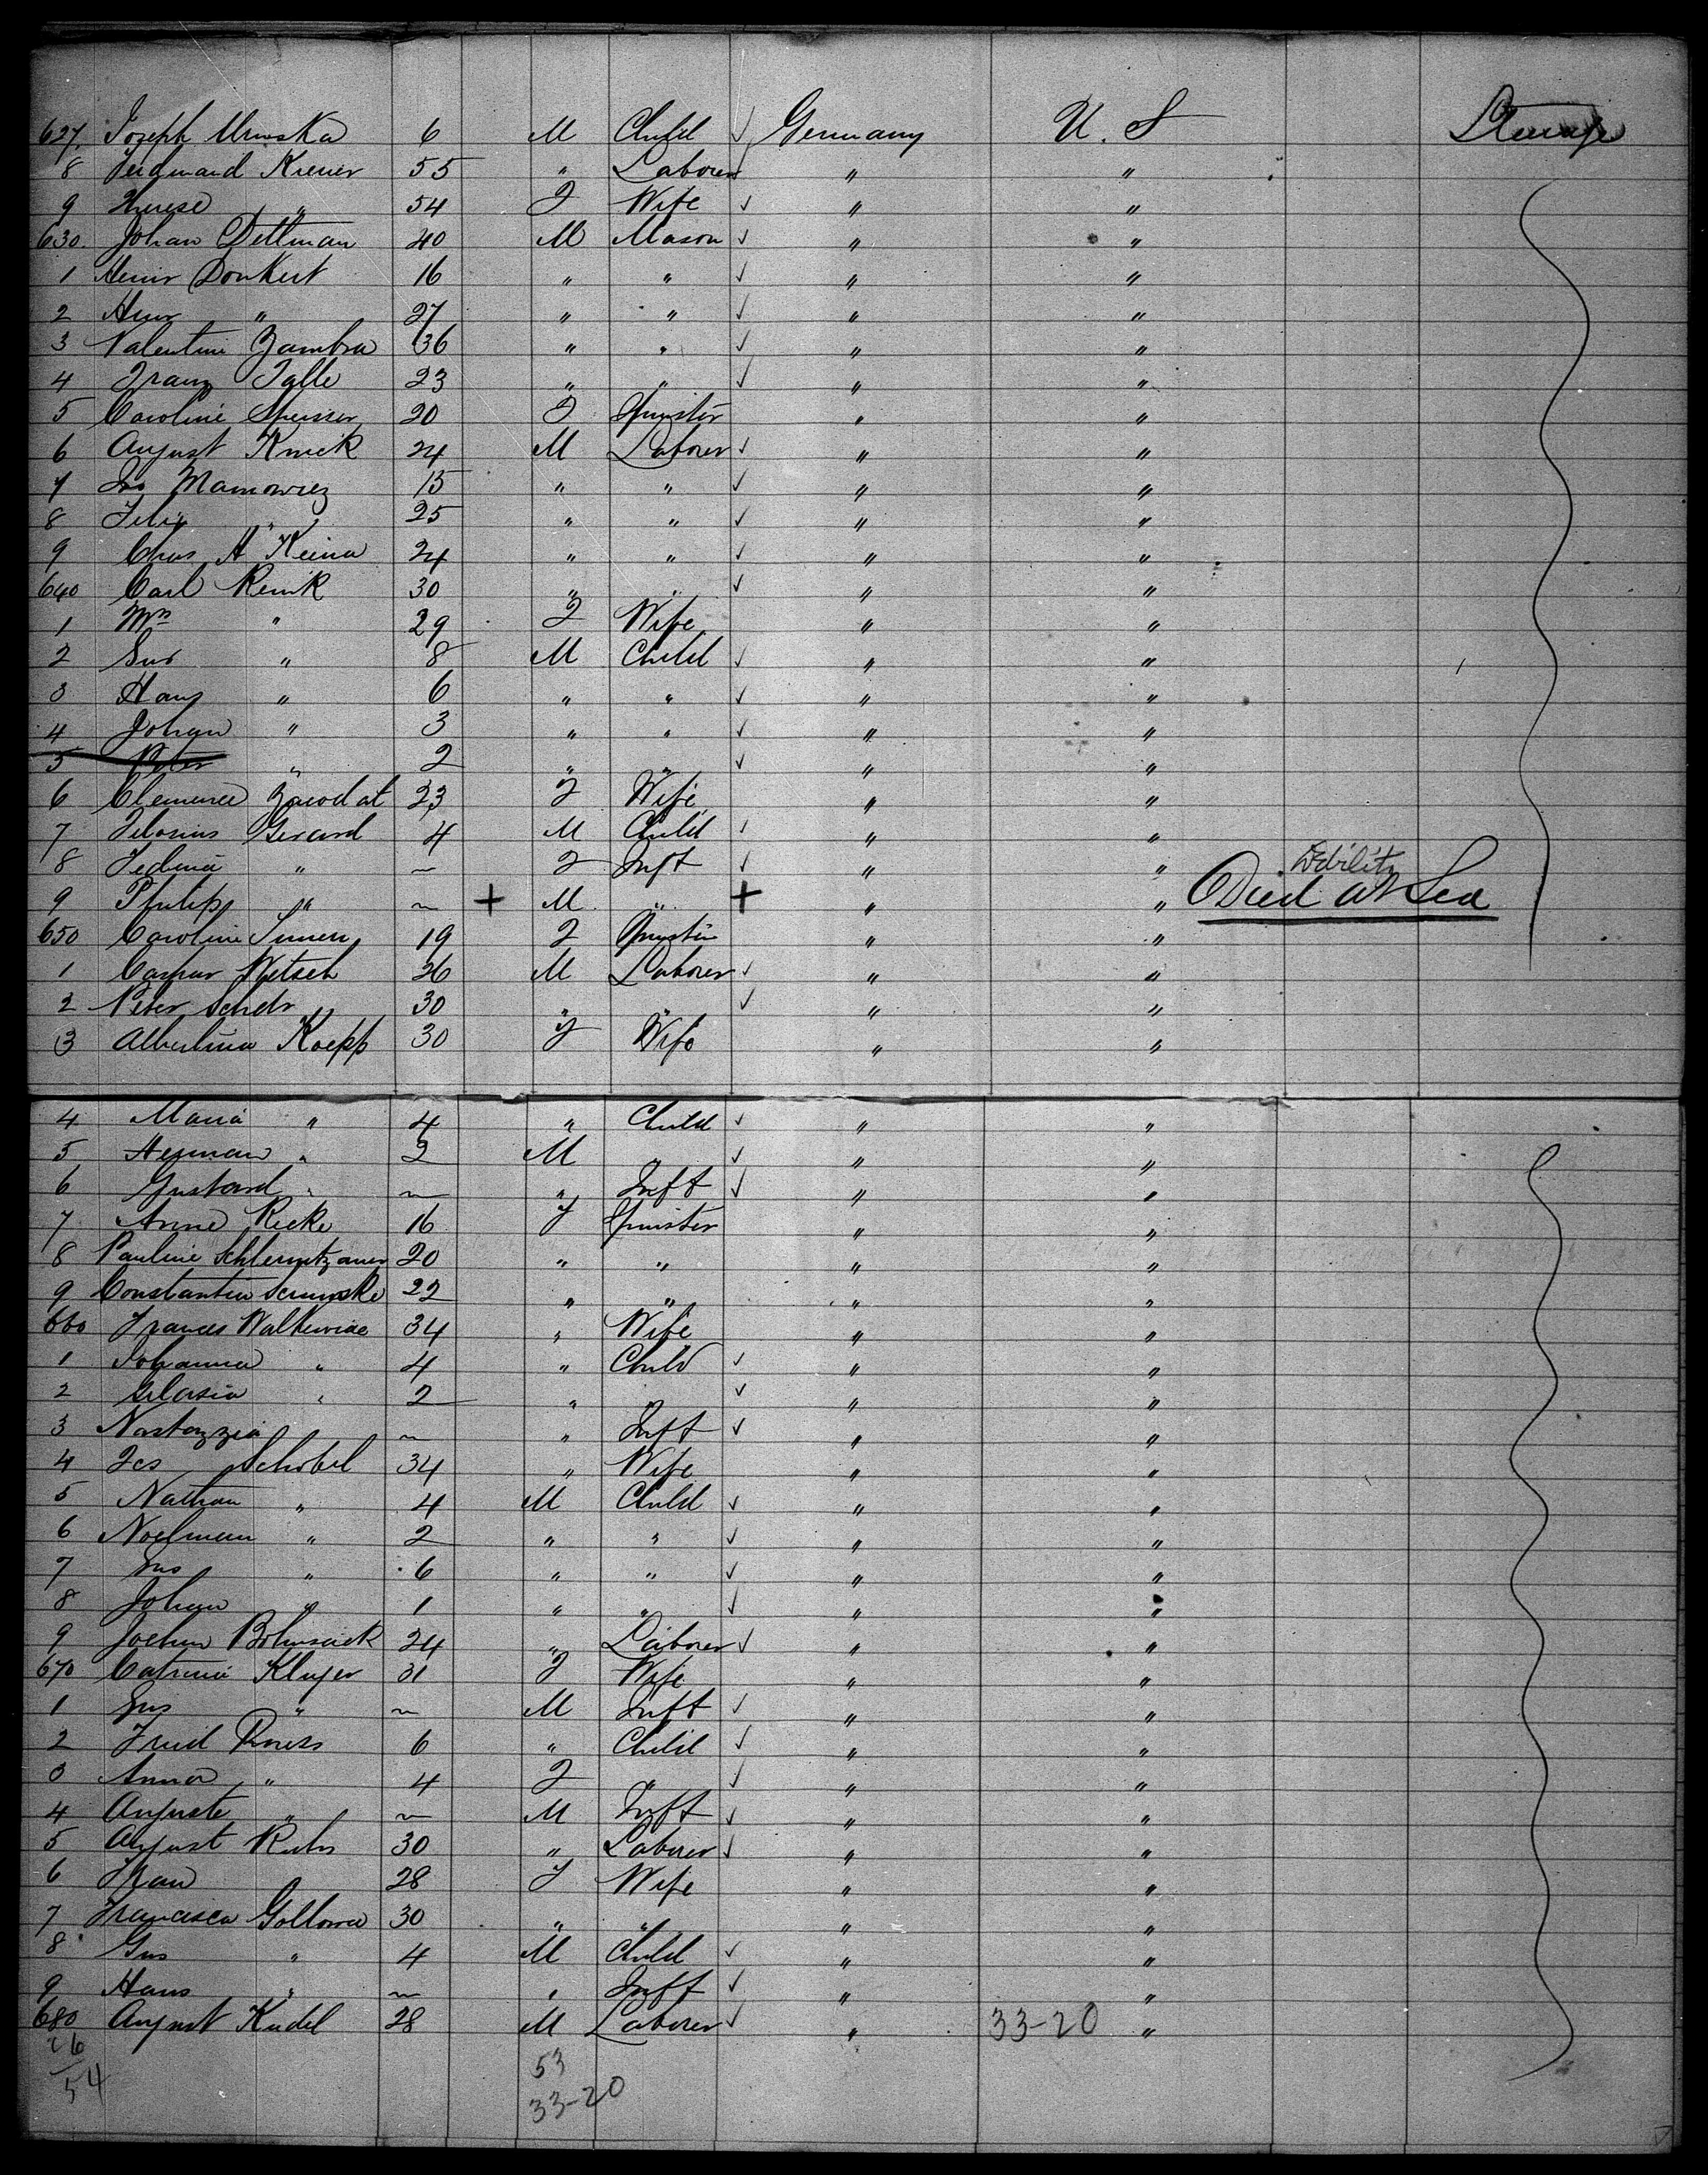 627. Joseph Urwska 6 M Child ✓ Germany U. S Steerage
8 Ferdinand Krener 55 " Laborer ✓ " "
9 Therese " 54 F Wife ✓ " "
630. Johan Dettman 40 M Mason ✓ " "
1 Henir Donkert 16 " " ✓ " "
2 " 27 " " ✓ " "
3 Valentine Zambra 36 " " ✓ " "
4 Franz Talle 23 " " ✓ " "
5 Caroline 20 F Spinster " "
6 August Knick 24 M Laborer ✓ " "
7 Mamowiez 15 " " ✓ " "
8 Felix " 25 " " ✓ " "
9 Chas A Keina 24 " " ✓ " "
640 Carl Renik 30 " " ✓ " "
1 Mrs " 29 F Wife " "
2 Gus " 8 M Child ✓ " "
3 Hans " 6 " " ✓ " "
4 Johan " 3 " " ✓ " "
5 Peter " 2 " " ✓ " "
6 Clemence Zawodat 23 F Wife " "
7 Gerard 4 M Child ✓ " "
8 " ~ F Inft ✓ " "
9 Philip " ~ + M " + " " Debility Died at Sea
650 Caroline 19 F Spinster " "
1 Caspar Wetsch 26 M Laborer ✓ " "
2 Peter Schdr 30 " " ✓ " "
3 Albertina Koepp 30 F Wife " "
4 Maria " 4 " Child ✓ " "
5 Herman " 2 M " ✓ " "
6 Gustavd " ~ " Inft ✓ " "
7 Anne Recke 16 F Spinster " "
8 Pauline 20 " " " "
9 Constantia 22 " " " "
660 Frances Walkewiae 34 " Wife " "
1 Johanna " 4 " Child ✓ " "
2 " 2 " " ✓ " "
3 Nastazzia ~ " Inft ✓ " "
4 Schobel 34 " Wife " "
5 Nathan " 4 M Child ✓ " "
6 Noelman " 2 " " ✓ " "
7 Gus " 6 " " ✓ " "
8 Johan " 1 " " ✓ " "
9 Jochim Bohnsack 24 " Laborer ✓ " "
670 Catrina Kluger 31 F Wife " "
1 Gus " ~ M Inft ✓ " "
2 Fried 6 " Child ✓ " "
3 Anna " 4 F " ✓ " "
4 Auguste " ~ M Inft ✓ " "
5 August Ruhs 30 " Laborer ✓ " "
6 Frau 28 F Wife " "
7 Francisca Gollowa 30 " " " "
8 Gus " 4 M Child ✓ " "
9 Hans " ~ " Inft ✓ " "
680 August Kudel 28 M Laborer ✓ " 33-20 "
26
54 53
33-20